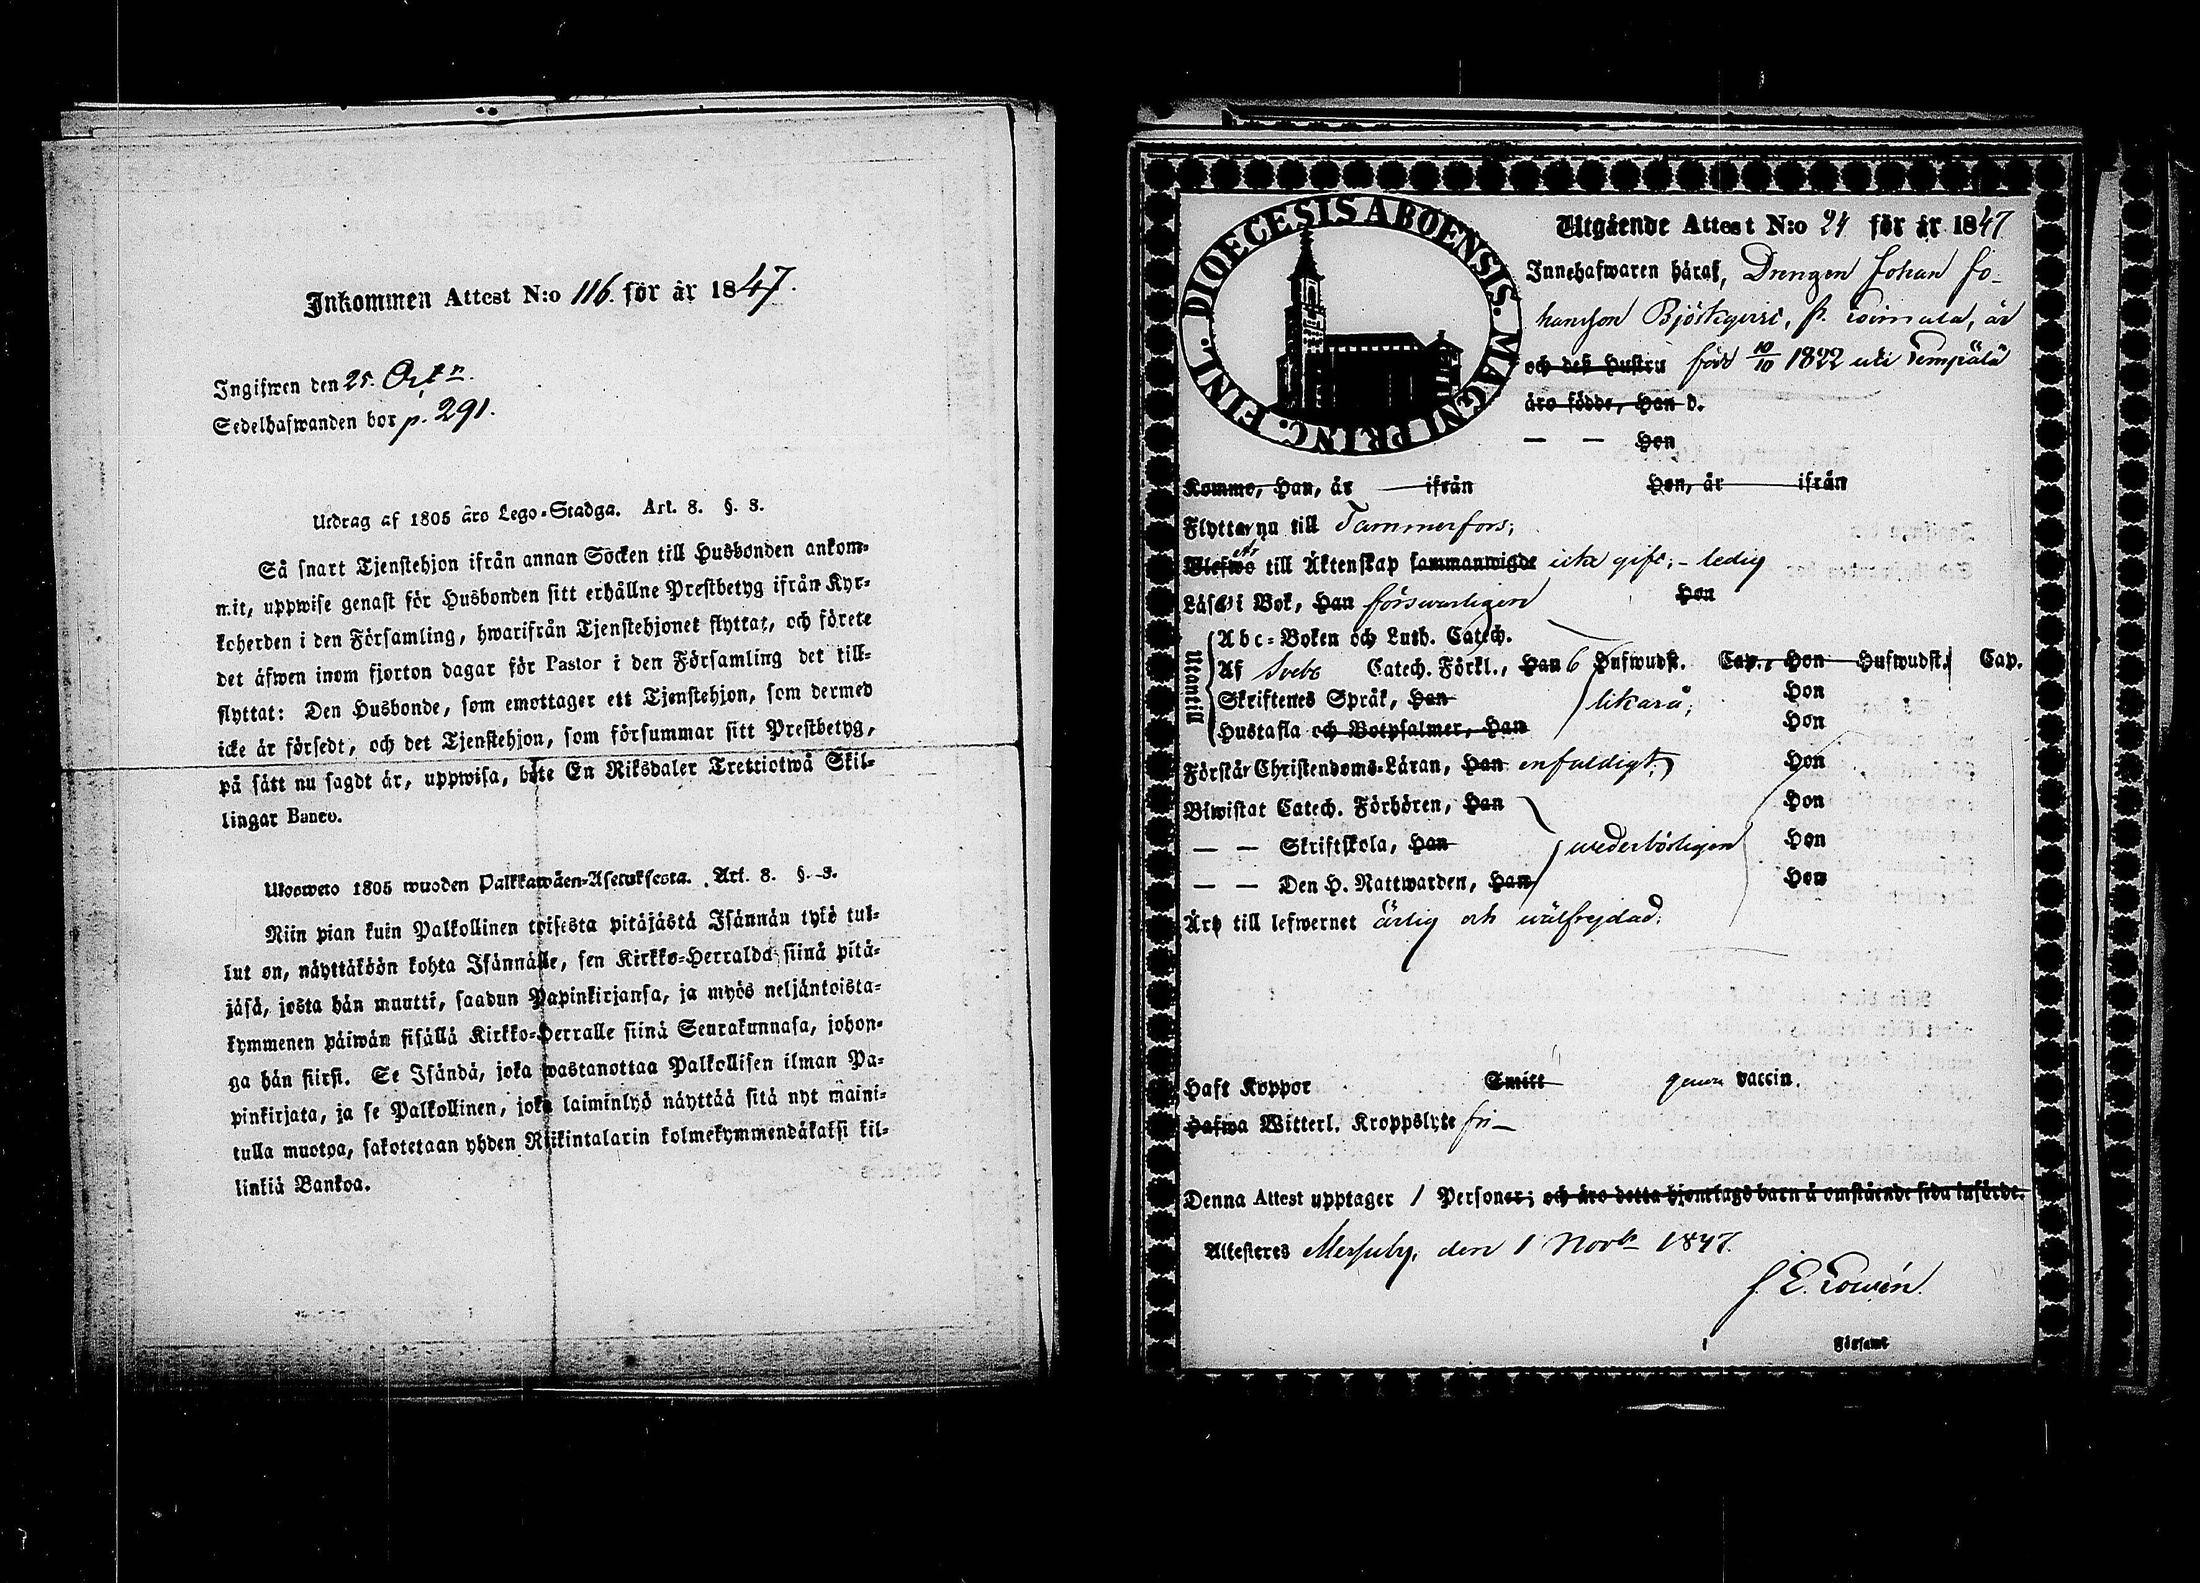 Inkommen Attest N:o 116. för år 1847.
Ingifwen den 25.
Sedelhafwanden bor p. 291.
Utdrag af 1805 års Lego-Stadga. Art. 8. §. 3.
Så snart Tjenstehjon ifrån annan Socken till Husbonden ankom-
mit, uppwise genast för Husbonden sitt erhållne Prestbetyg ifrån Kyr-
koherden i den Församling, hwarifrån Tjenstehjonet flyttat, och förete
det äfwen inom fjorton dagar för Pastor i den Församling det till-
flyttat: Den Husbonde, som emottager ett Tjenstehjon, som dermed
icke är försedt, och det Tjenstehjon, som försummar sitt Prestbetyg,
på sätt nu sagdt är, uppwisa, böte En Riksdaler Trettiotwå Skil-
lingar Banco.
Ulosweto 1805 wuoden Palkkawäen-Asetuksesta. Art. 8. §. 3.
Niin pian kuin Palkollinen toisesta pitäjästä Isännän tykö tul-
lut on, näyttäköön kohta Isännälle, sen Kirkko-Herralda siinä pitä-
jäsä, josta hän muutti, saadun Papinkirjansa, ja myös neljäntoista-
kymmenen päiwän sisällä Kirkko-Herralle siinä Seurakunnasa, johon-
ga hän siirsi. Se Isändä, joka wastanottaa Palkollisen ilman Pa-
pinkirjata, ja se Palkollinen, joka laiminlyö näyttää sitä nyt maini-
tulla muotoa, sakotetaan yhden Riikintalarin kolmekymmendäkaksi kil-
linkiä Bankoa.
DIOECESIS ABOENSIS. MAGNI PRINC. FINL.
Utgående Attest N:o 24 för år 1847
Innehafwaren häraf, Drengen Johan Jo-
hansson fr. är
och deß Hustru född 10/10 1822 uti Lempälä
äro födde, Han d.
— — Hon
Komme, Han, år — ifrån Hon, år — ifrån
Flyttar nu till Tammerfors;
Blefwo är till Äktenskap sammanwigde icke gift; - ledig
Läser i Bok, Han förswarligen Hon
Utantill
Abc-Boken och Luth. Catech.
Af Svebo Catech. Förkl., Han 6 Hufwudst. Cap., Hon Hufwudst. Cap.
Skriftenes Språk, Han likaså; Hon
Hustafla och Botpsalmer, Han Hon
Förstår Christendoms-Läran, Han enfaldigt; Hon
Biwistat Catech. Förhören, Han Hon
— — Skriftskola, Han wederbörligen Hon
— — Den H. Nattwarden, Han Hon
Är till lefwernet ärlig och wälfrejdad;
Haft Koppor Smitt genom vaccin.
Hafwa Witterl. Kroppslyte fri —
Denna Attest upptager 1 Personer; och äro detta hjonelags barn å omstående sida införde.
Attesteres Messuby, den 1 Novbr 1847.